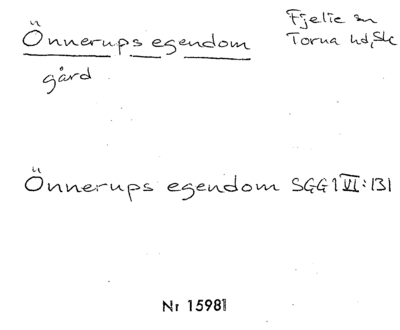 Önnerups egendom
Fjelie sn
Torna hd, Sk
gård
Önnerups egendom SGG1 VI:131
Nr 1598